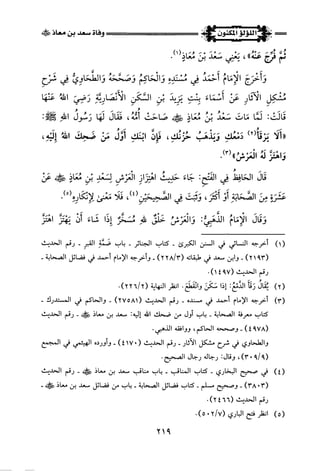 اللؤلؤ المكنون
وفاة سعد بن معاذ ﵁
ثُمَّ فُرِّجَ عَنْهُ»، يَعْنِي سَعْدَ بْنَ مُعَاذٍ(١).
وَأَخْرَجَ الْإِمَامُ أَحْمَدُ فِي مُسْنَدِهِ وَالْحَاكِمُ وَصَحَّحَهُ وَالطَّحَاوِيُّ فِي شَرْحِ
مُشْكِلِ الْآثَارِ عَنْ أَسْمَاءَ بِنْتِ يَزِيدَ بْنِ السَّكَنِ الْأَنْصَارِيَّةِ رَضِيَ اللهُ عَنْهَا
قَالَتْ: لَمَّا مَاتَ سَعْدُ بْنُ مُعَاذٍ ﵁ صَاحَتْ أُمُّهُ، فَقَالَ لَهَا رَسُولُ اللهِ ﷺ:
«أَلَا يَرْقَأُ(٢) دَمْعُكِ وَيَذْهَبُ حُزْنُكِ، فَإِنَّ ابْنَكِ أَوَّلُ مَنْ ضَحِكَ اللهُ إِلَيْهِ،
وَاهْتَزَّ لَهُ الْعَرْشُ»(٣).
قَالَ الْحَافِظُ فِي الْفَتْحِ: جَاءَ حَدِيثُ اهْتِزَازِ الْعَرْشِ لِسَعْدِ بْنِ مُعَاذٍ ﵁ عَنْ
عَشَرَةٍ مِنَ الصَّحَابَةِ أَوْ أَكْثَرَ، وَثَبَتَ فِي الصَّحِيحَيْنِ(٤)، فَلَا مَعْنَى لِإِنْكَارِهِ(٥).
وَقَالَ الْإِمَامُ الذَّهَبِيُّ: وَالْعَرْشُ خَلْقٌ لِلهِ مُسَخَّرٌ إِذَا شَاءَ أَنْ يَهْتَزَّ اهْتَزَّ
(١) أخرجه النسائي في السنن الكبرى ـ كتاب الجنائز ـ باب ضَمَّةِ القبر ـ رقم الحديث
(٢١٩٣) ـ وابن سعد في طبقاته (٢٢٨/٣) ـ وأخرجه الإمام أحمد في فضائل الصحابة ـ
رقم الحديث (١٤٩٧).
(٢) يُقَالُ رَقَأَ الدَّمْعُ: إِذَا سَكَنَ وَانْقَطَعَ. انظر النهاية (٢٢٦/٢).
(٣) أخرجه الإمام أحمد في مسنده ـ رقم الحديث (٢٧٥٨١) ـ والحاكم في المستدرك ـ
كتاب معرفة الصحابة ـ باب أول من ضحك الله إليه: سعد بن معاذ ﵁ ـ رقم الحديث
(٤٩٧٨) ـ وصححه الحاكم، ووافقه الذهبي.
والطحاوي في شرح مشكل الآثار ـ رقم الحديث (٤١٧٠) ـ وأورده الهيثمي في المجمع
(٣٠٩/٩)، وقال: رجاله رجال الصحيح.
(٤) في صحيح البخاري ـ كتاب المناقب ـ باب مناقب سعد بن معاذ ﵁ ـ رقم الحديث
(٣٨٠٣) ـ وصحيح مسلم ـ كتاب فضائل الصحابة ـ باب من فضائل سعد بن معاذ ﵁ ـ
رقم الحديث (٢٤٦٦).
(٥) انظر فتح الباري (٥٠٢/٧).
٢١٩